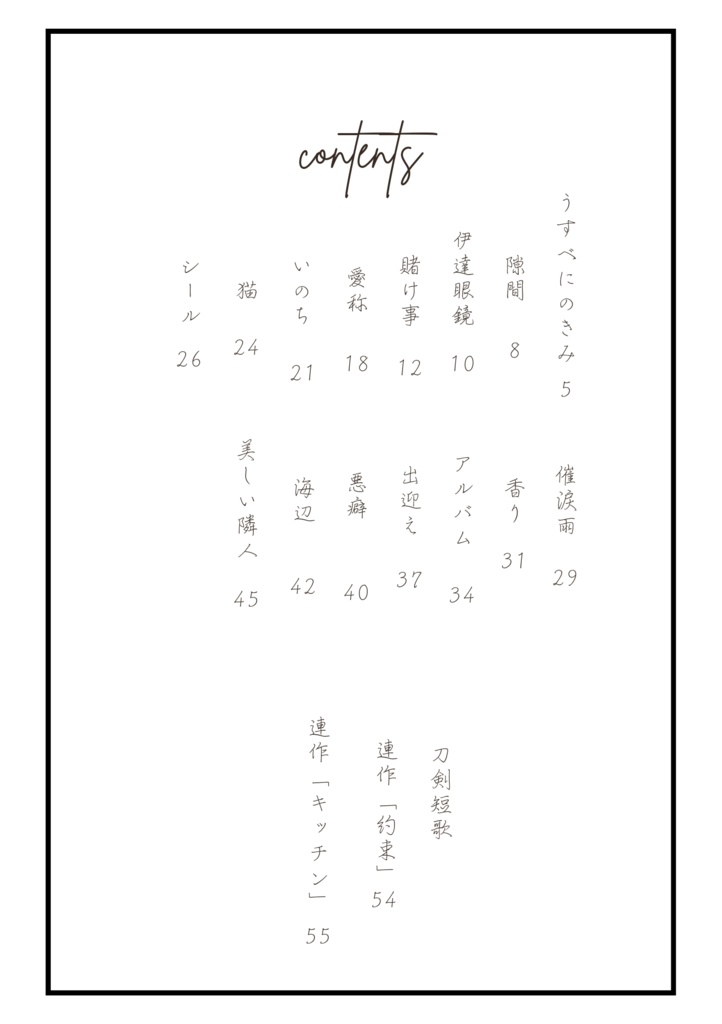 contents
うすべにのきみ 5
隙間 8
伊達眼鏡 10
賭け事 12
愛称 18
いのち 21
猫 24
シール 26
催涙雨 29
香り 31
アルバム 34
出迎え 37
悪癖 40
海辺 42
美しい隣人 45
刀剣短歌
連作「約束」 54
連作「キッチン」 55